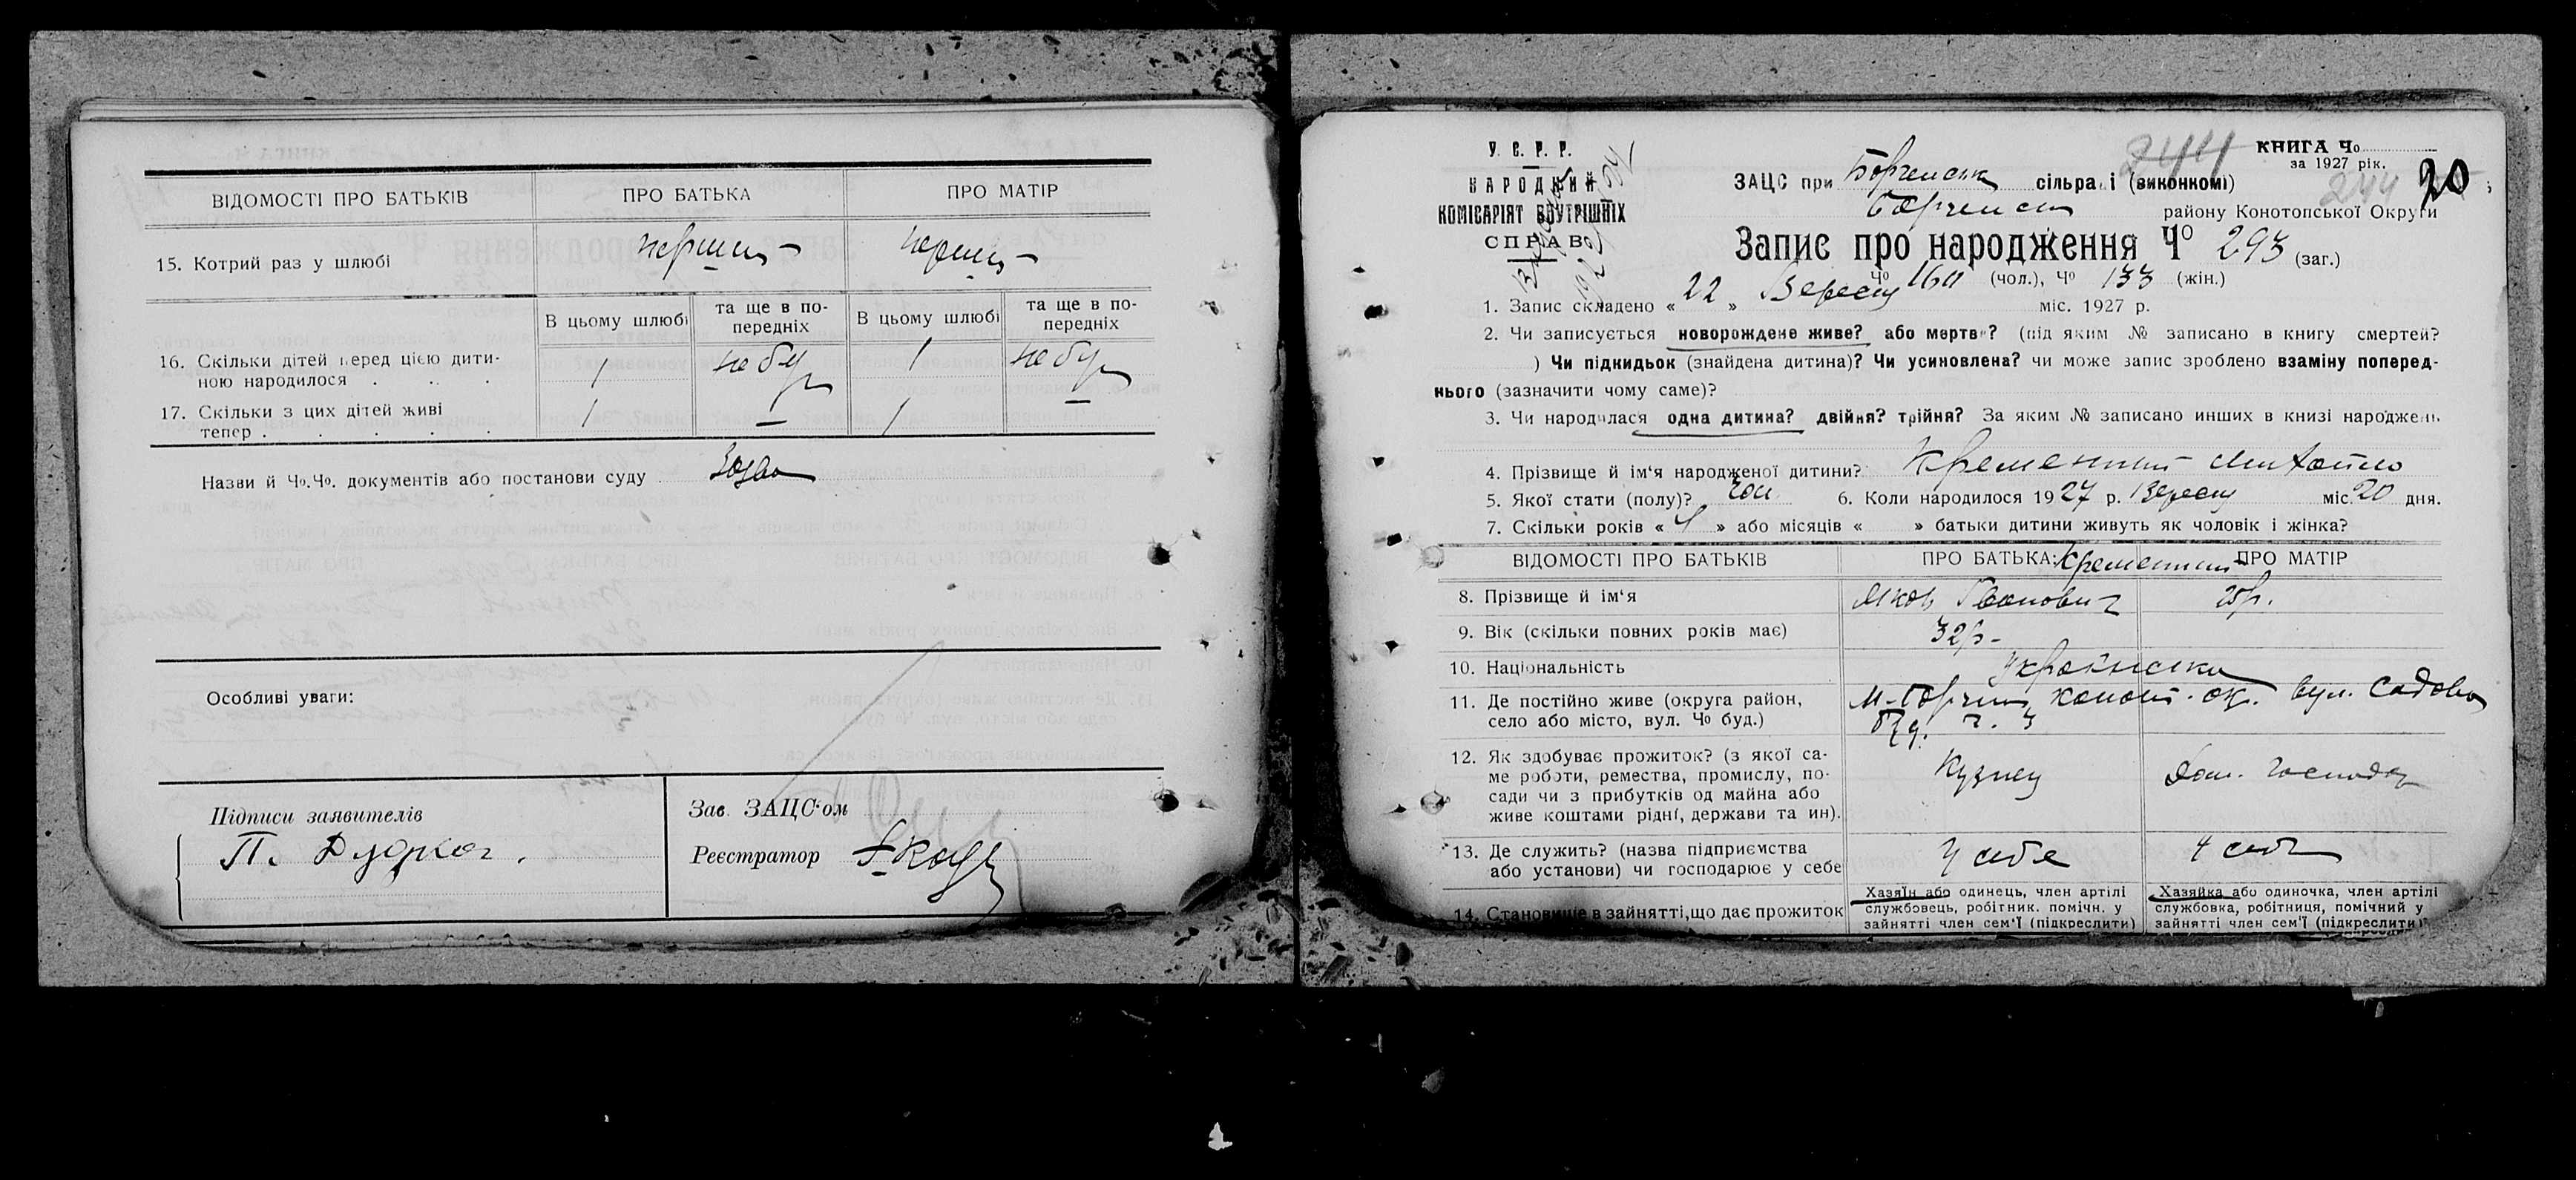 ВІДОМОСТІ ПРО БАТЬКІВ ПРО БАТЬКА ПРО МАТІР
15. Котрий раз у шлюбі перший перший
В цьому шлюбі та ще в по-
передніх В цьому шлюбі та ще в по-
передніх
16. Скільки дітей перед цією дити-
ною народилося 1 не бул 1 не бул
17. Скільки з цих дітей живі
тепер 1 — 1 —
Назви й Чо.Чо. документів або постанови суду
Особливі уваги:
Підписи заявителів
П.
Зав. ЗАЦС'ом
Реєстратор
У. С. Р. Р.
НАРОДНИЙ
КОМІСАРІЯТ ВНУТРІШНІХ
СПРАВ
КНИГА Чо
за 1927 рік.
244
244 20
ЗАЦС при Борзенськ сільраді (виконкомі)
Борзенск району Конотопської Округи
Запис про народження Чо 293 (заг.)
Чо 160 (чол.), Чо 133 (жін.)
1. Запис складено « 22 » Вересня міс. 1927 р.
2. Чи записується новорождене живе? або мертве? (під яким № записано в книгу смертей?
) Чи підкидьок (знайдена дитина)? Чи усиновлена? чи може запис зроблено взаміну поперед-
нього (зазначити чому саме)?
3. Чи народилася одна дитина? двійня? трійня? За яким № записано инших в книзі народжень
4. Прізвище й ім'я народженої дитини? Кременний Михайло
5. Якої стати (полу)? чол. 6. Коли народилося 1927 р. Вересня міс. 20 дня.
7. Скільки років « 4 » або місяців « » батьки дитини живуть як чоловік і жінка?
ВІДОМОСТІ ПРО БАТЬКІВ ПРО БАТЬКА: Кременний ПРО МАТІР
8. Прізвище й ім'я Яков Іванович
9. Вік (скільки повних років має) 32 р.
10. Національність Українська
11. Де постійно живе (округа район,
село або місто, вул. Чо буд.) М. Борзна Коноп. ок. вул. Садова
буд. ч. 3
12. Як здобуває прожиток? (з якої са-
ме роботи, ремества, промислу, по-
сади чи з прибутків од майна або
живе коштами рідні, держави та ин). Кузнец Дом. господар
13. Де служить? (назва підприємства
або установи) чи господарює у себе у себе у себе
14. Становище в зайнятті, що дає прожиток
Хазяїн або одинець, член артілі
службовець, робітник. помічн. у
зайнятті член сем'ї (підкреслити)
Хазяйка або одиночка, член артілі
службовка, робітниця, помічний у
зайнятті член сем'ї (підкреслити)